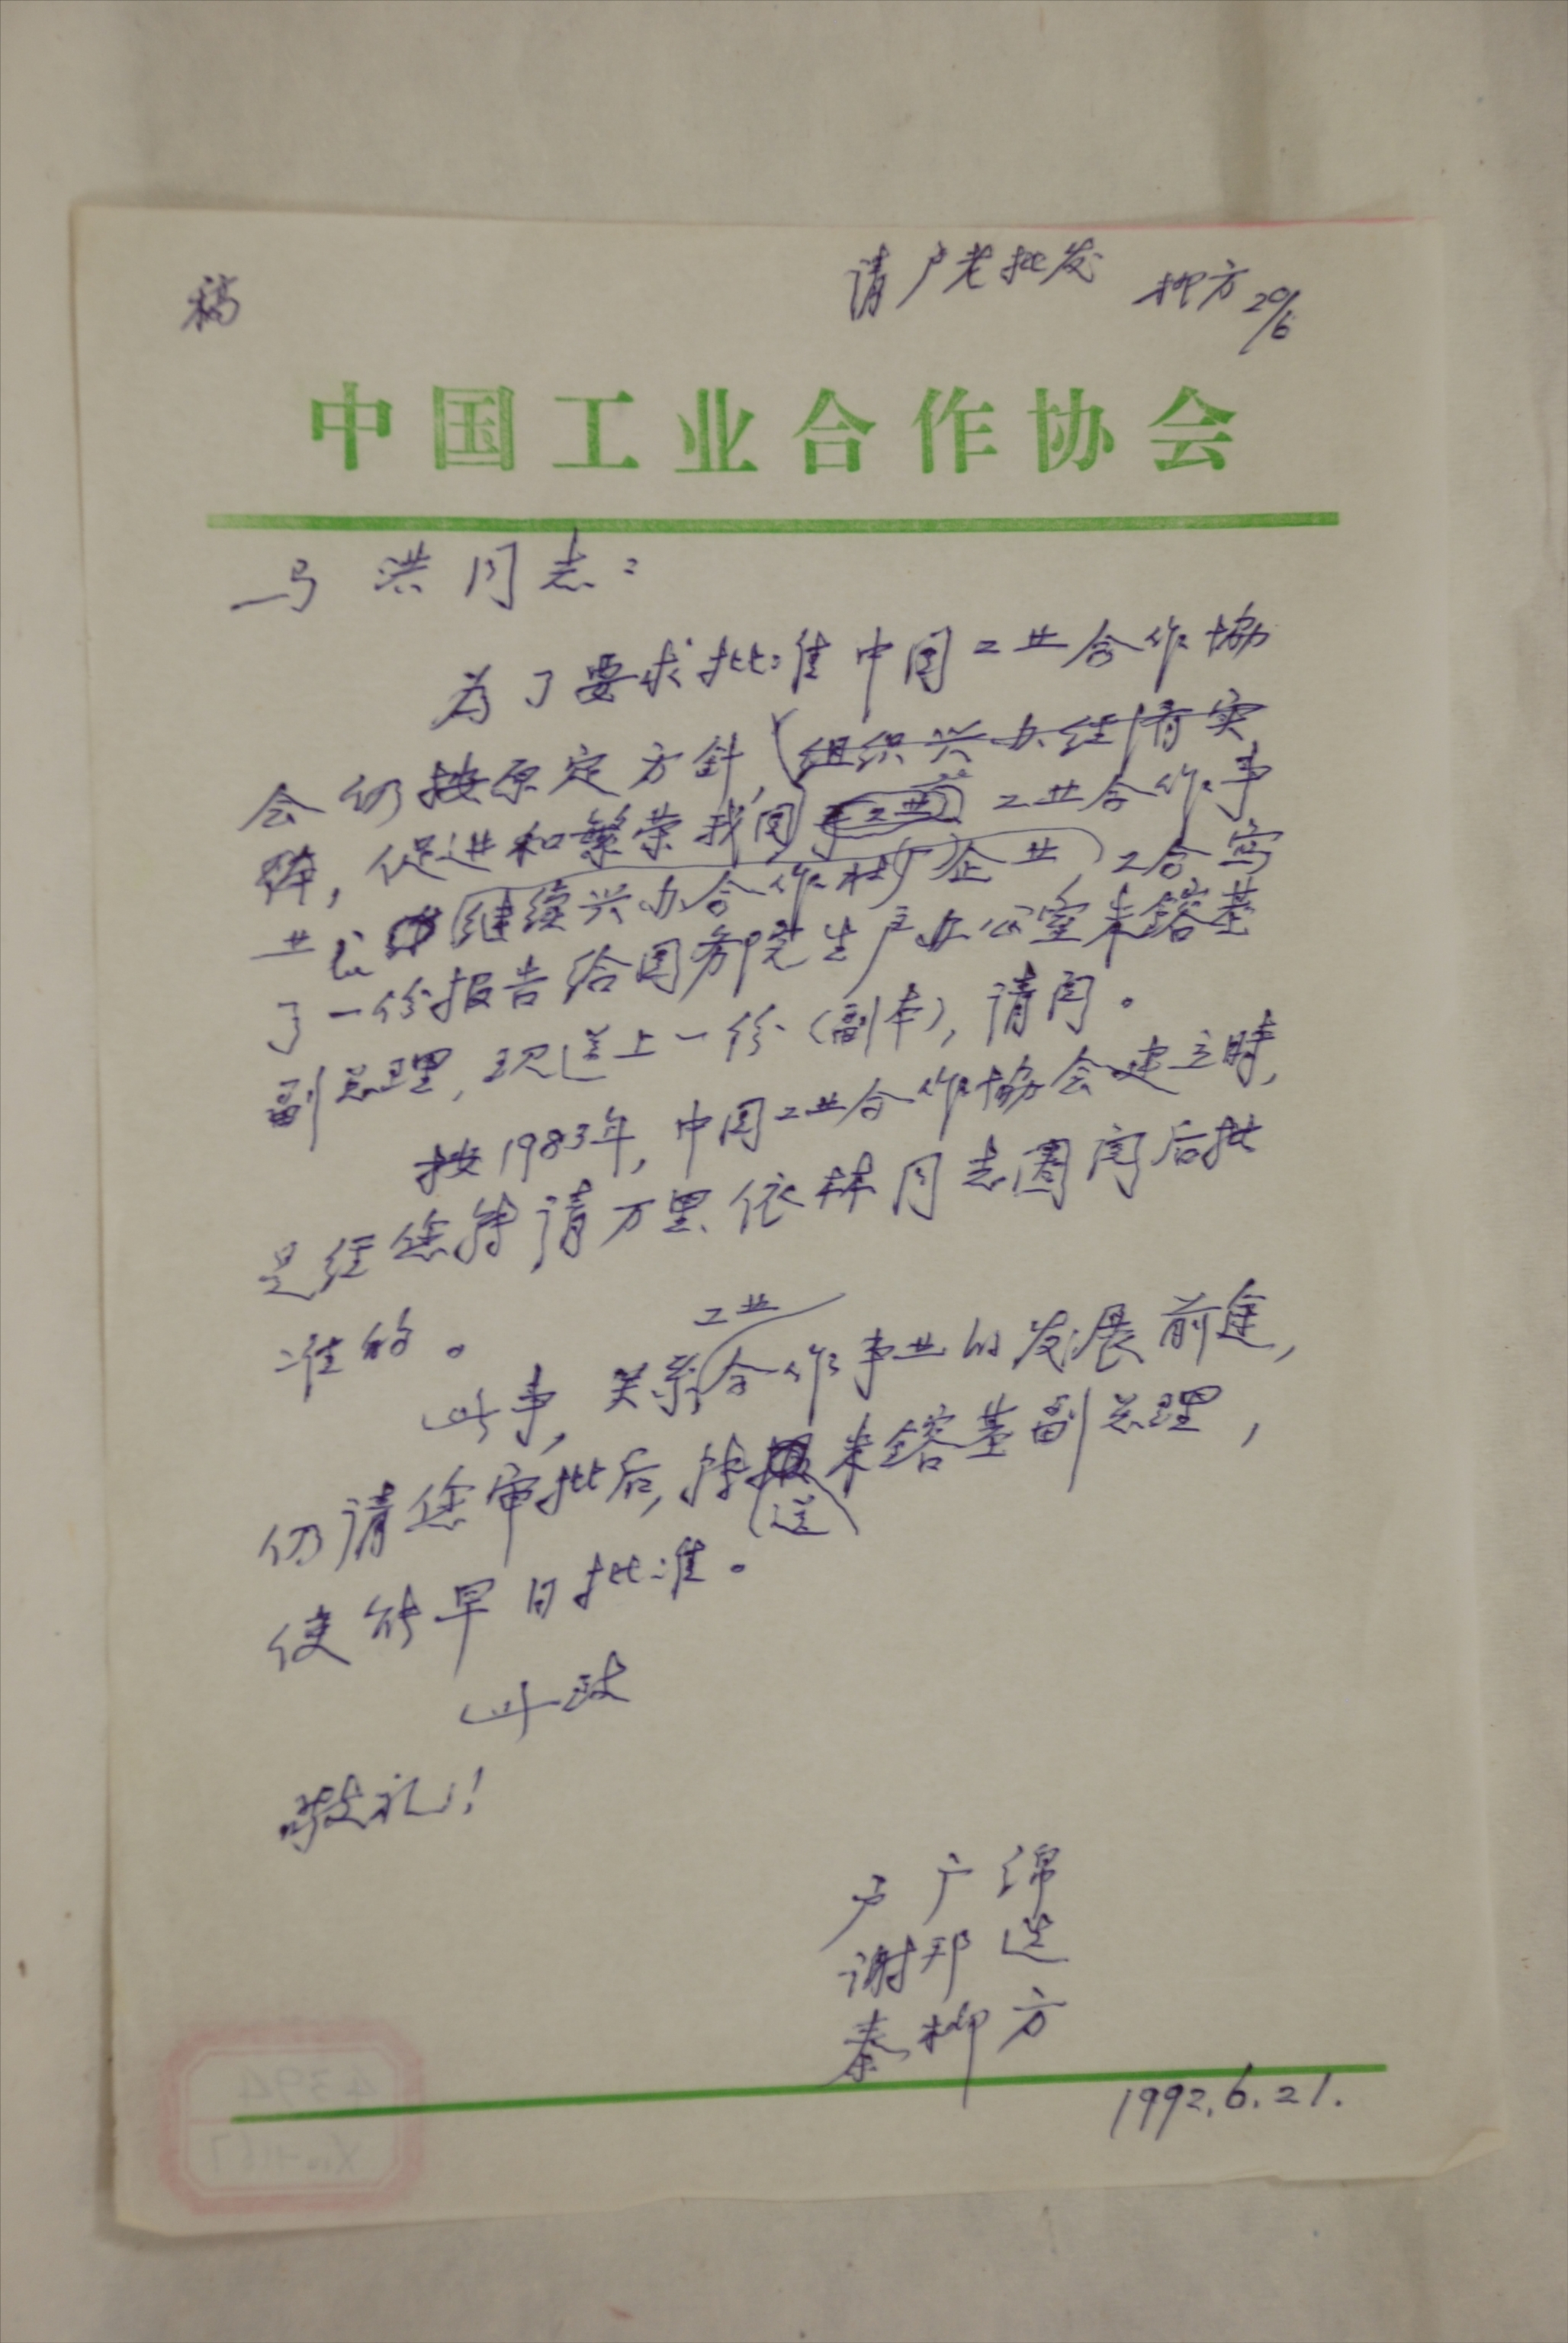 稿
请卢老批发 柳方 20/6
中国工业合作协会
马洪同志：
为了要求批准中国工业合作協
会仍按原定方針，组织兴办经济实
体，促进和繁荣我国工业合作事
业，继续兴办合作社企业，工合写
了一份报告给国务院生产办公室朱鎔基
副总理，现送上一份（副本），请阅。
按1983年，中国工业合作協会建立時，
是经您转请万里、依林同志圈阅后批
准的。
工业
此事，关系合作事业的发展前途，
仍请您审批后，转报朱鎔基副总理，
送
使能早日批准。
此致
敬礼！
卢广绵
谢邦选
秦柳方
1992.6.21.